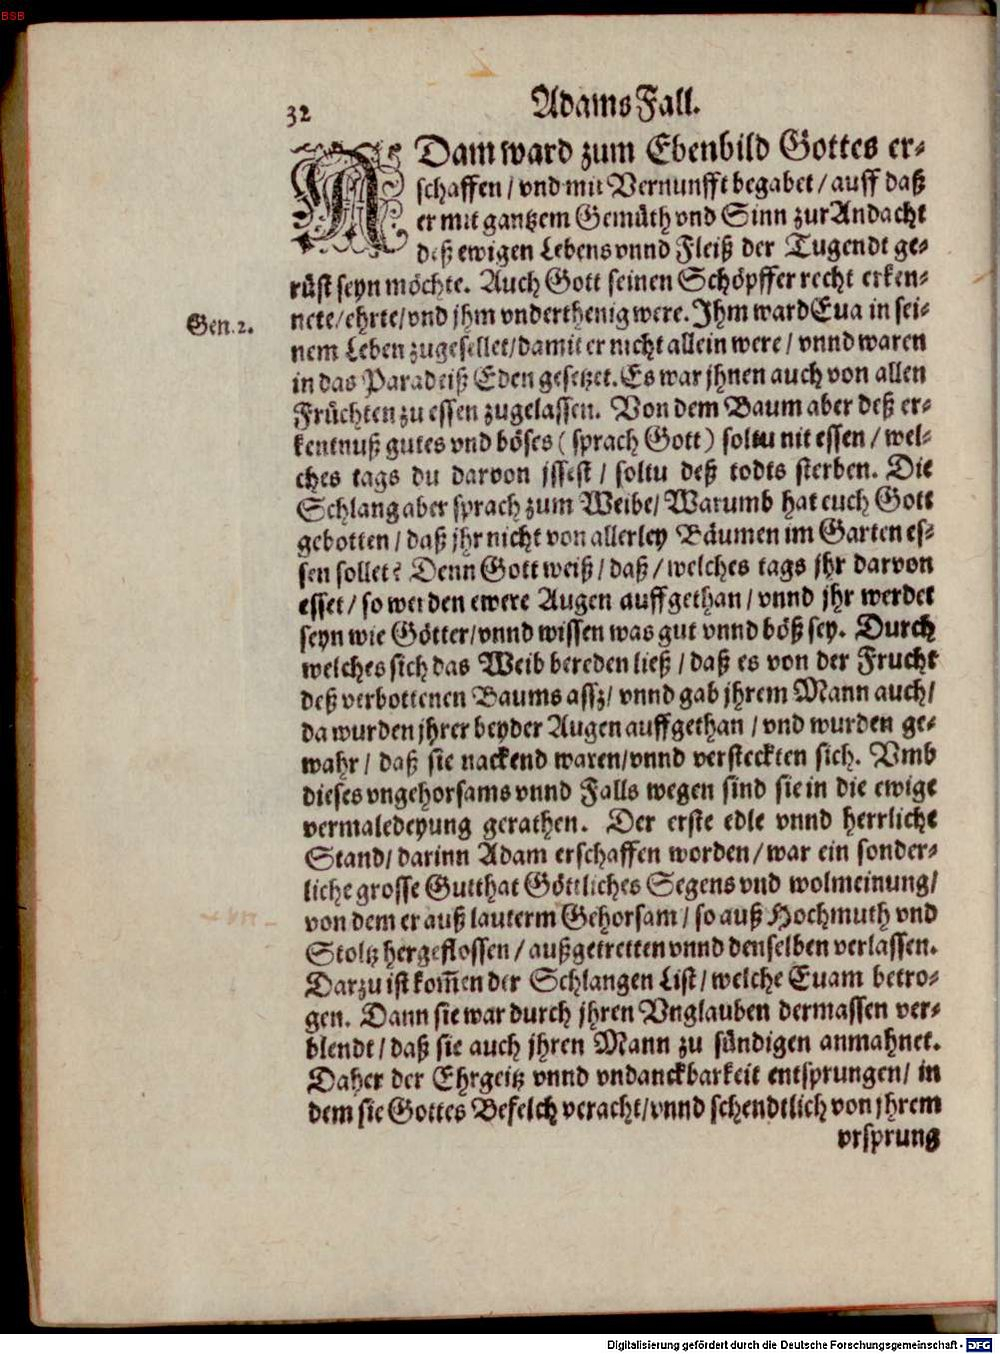 BSB
32
Adams Fall.
ADam ward zum Ebenbild Gottes er-
schaffen / vnd mit Vernunfft begabet / auff daß
er mit gantzem Gemüth vnd Sinn zur Andacht
deß ewigen Lebens vnnd Fleiß der Tugendt ge-
rüst seyn möchte. Auch Gott seinen Schöpffer recht erken-
nete / ehrte / vnd jhm vnderthenig were. Ihm ward Eua in sei-
Gen. 2.
nem Leben zugesellet / damit er nicht allein were / vnnd waren
in das Paradeiß Eden gesetzet. Es war jhnen auch von allen
Früchten zu essen zugelassen. Von dem Baum aber deß er-
kentnuß gutes vnd böses ( sprach Gott ) soltu nit essen / wel-
ches tags du darvon jssest / soltu deß todts sterben. Die
Schlang aber sprach zum Weibe / Warumb hat euch Gott
gebotten / daß jhr nicht von allerley Bäumen im Garten es-
sen sollet? Denn Gott weiß / daß / welches tags jhr darvon
esset / so werden ewere Augen auffgethan / vnnd jhr werdet
seyn wie Götter / vnnd wissen was gut vnnd böß sey. Durch
welches sich das Weib bereden ließ / daß es von der Frucht
deß verbottenen Baums assz / vnnd gab jhrem Mann auch /
da wurden jhrer beyder Augen auffgethan / vnd wurden ge-
wahr / daß sie nackend waren / vnnd versteckten sich. Vmb
dieses vngehorsams vnnd Falls wegen sind sie in die ewige
vermaledeyung gerathen. Der erste edle vnnd herrliche
Stand / darinn Adam erschaffen worden / war ein sonder-
liche grosse Gutthat Göttliches Segens vnd wolmeinung /
von dem er auß lauterm Gehorsam / so auß Hochmuth vnd
Stoltz hergeflossen / außgetretten vnnd denselben verlassen.
Darzu ist kom̃en der Schlangen List / welche Euam betro-
gen. Dann sie war durch jhren Vnglauben dermassen ver-
blendt / daß sie auch jhren Mann zu sündigen anmahnet.
Daher der Ehrgeitz vnnd vndanckbarkeit entsprungen / in
dem sie Gottes Befelch veracht / vnnd schendtlich von jhrem
vrsprung
Digitalisierung gefördert durch die Deutsche Forschungsgemeinschaft - DFG